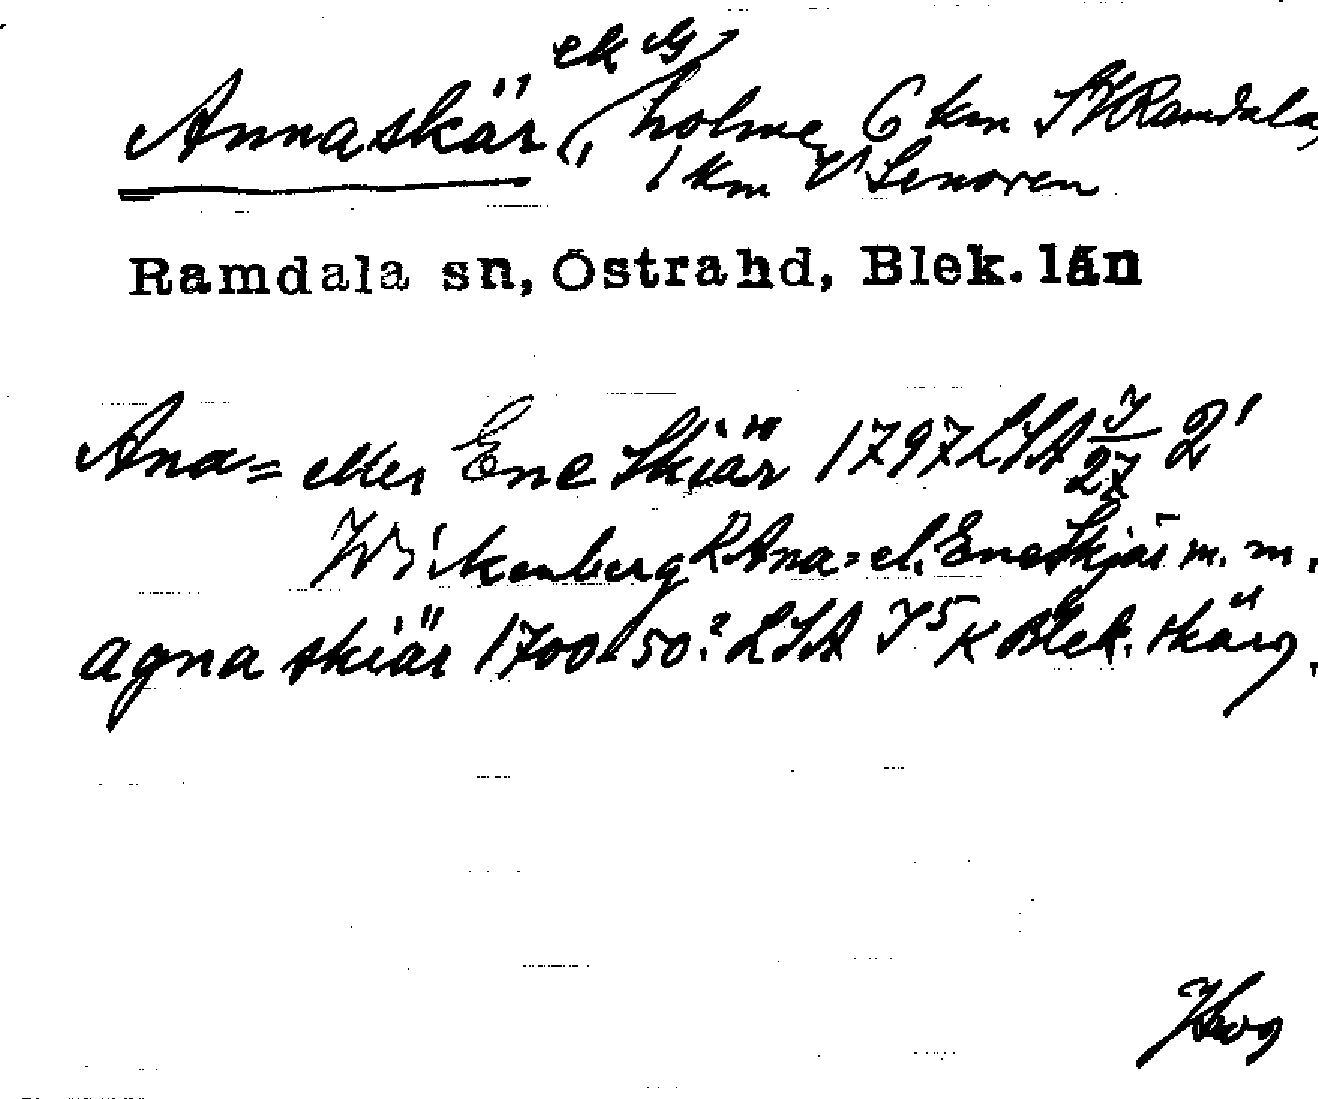 ek G
Annaskär, holme 6 km SV Ramdala,
1 km V Senoren
Ramdala sn, Östrahd, Blek. län
Ana= eller Ene Skiär 1797 LSA J/27 2¹
Wirkenberg R Ana= el. Ene Skjär m. m.
agna skiär 1700-50? LSA J5 K Blek. skärg.